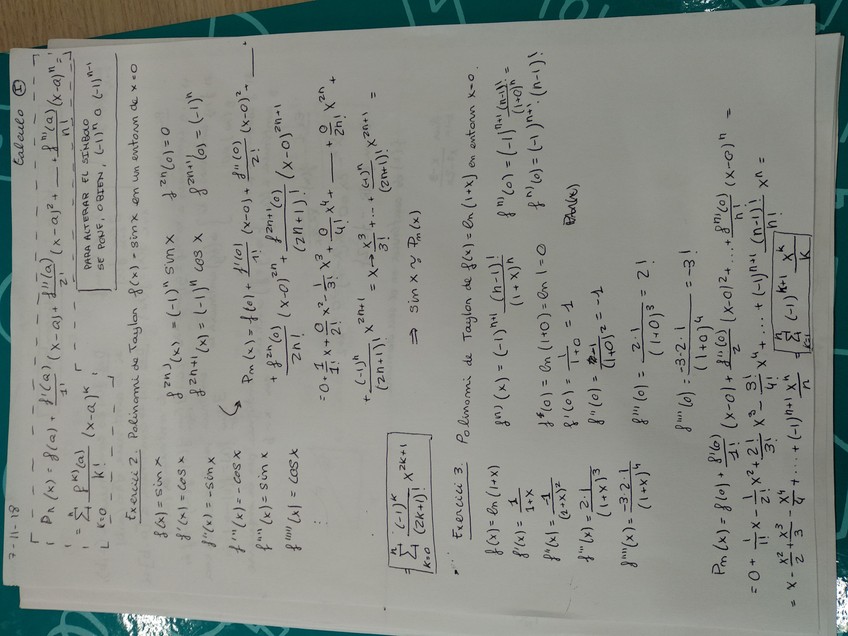 7-11-18
Calculo I
Pn(x) = f(a) + f'(a)/1! (x-a) + f''(a)/2! (x-a)² + __ + fⁿ⁾(a)/n! (x-a)ⁿ =
= Σ_{k=0}^{n} fᵏ⁾(a)/k! (x-a)ᵏ
PARA ALTERAR EL SÍMBOLO
SE PONE, OBIEN, (-1)ⁿ O (-1)ⁿ⁻¹
Exercici 2. Polinomi de Taylor f(x) = sinx en un entorn de x=0
f(x) = sinx
f'(x) = cosx
f''(x) = -sinx
f'''(x) = -cosx
f''''(x) = sinx
f'''''(x) = cosx
⋮
f²ⁿ⁾(x) = (-1)ⁿ sinx
f²ⁿ⁺¹(x) = (-1)ⁿ cosx
f²ⁿ(0) = 0
f²ⁿ⁺¹(0) = (-1)ⁿ
Pm(x) = f(0) + f'(0)/1! (x-0) + f''(0)/2! (x-0)² + __ +
+ f²ⁿ⁾(0)/2n! (x-0)²ⁿ + f²ⁿ⁺¹(0)/(2n+1)! (x-0)²ⁿ⁺¹
= 0 + 1/1! x + 0/2! x² - 1/3! x³ + 0/4! x⁴ + __ + 0/2n! x²ⁿ +
+ (-1)ⁿ/(2n+1)! x²ⁿ⁺¹ = x - x³/3! + ... + (-1)ⁿ/(2n+1)! x²ⁿ⁺¹ =
= Σ_{k=0}^{n} (-1)ᵏ/(2k+1)! x²ᵏ⁺¹
⇒ sinx ≈ Pm(x)
Exercici 3. Polinomi de Taylor de f(x) = ln(1+x) en entorn x=0.
f(x) = ln(1+x)
f'(x) = 1/(1+x)
f''(x) = -1/(1+x)²
f'''(x) = 2·1/(1+x)³
f''''(x) = -3·2·1/(1+x)⁴
fⁿ⁾(x) = (-1)ⁿ⁺¹ (n-1)!/(1+x)ⁿ
f(0) = ln(1+0) = ln1 = 0
f'(0) = 1/(1+0) = 1
f''(0) = -1/(1+0)² = -1
f'''(0) = 2·1/(1+0)³ = 2!
f''''(0) = -3·2·1/(1+0)⁴ = -3!
fⁿ⁾(0) = (-1)ⁿ⁺¹ (n-1)!/(1+0)ⁿ =
fⁿ⁾(0) = (-1)ⁿ⁺¹·(n-1)!
Pm(x)
Pm(x) = f(0) + f'(0)/1! (x-0) + f''(0)/2 (x-0)² + ... + fⁿ⁾(0)/n! (x-0)ⁿ =
= 0 + 1/1! x - 1/2! x² + 2!/3! x³ - 3!/4! x⁴ + ... + (-1)ⁿ⁺¹ (n-1)!/n! xⁿ =
= x - x²/2 + x³/3 - x⁴/4 + ... + (-1)ⁿ⁺¹ xⁿ/n = Σ_{k=1}^{n} (-1)ᵏ⁺¹ xᵏ/k